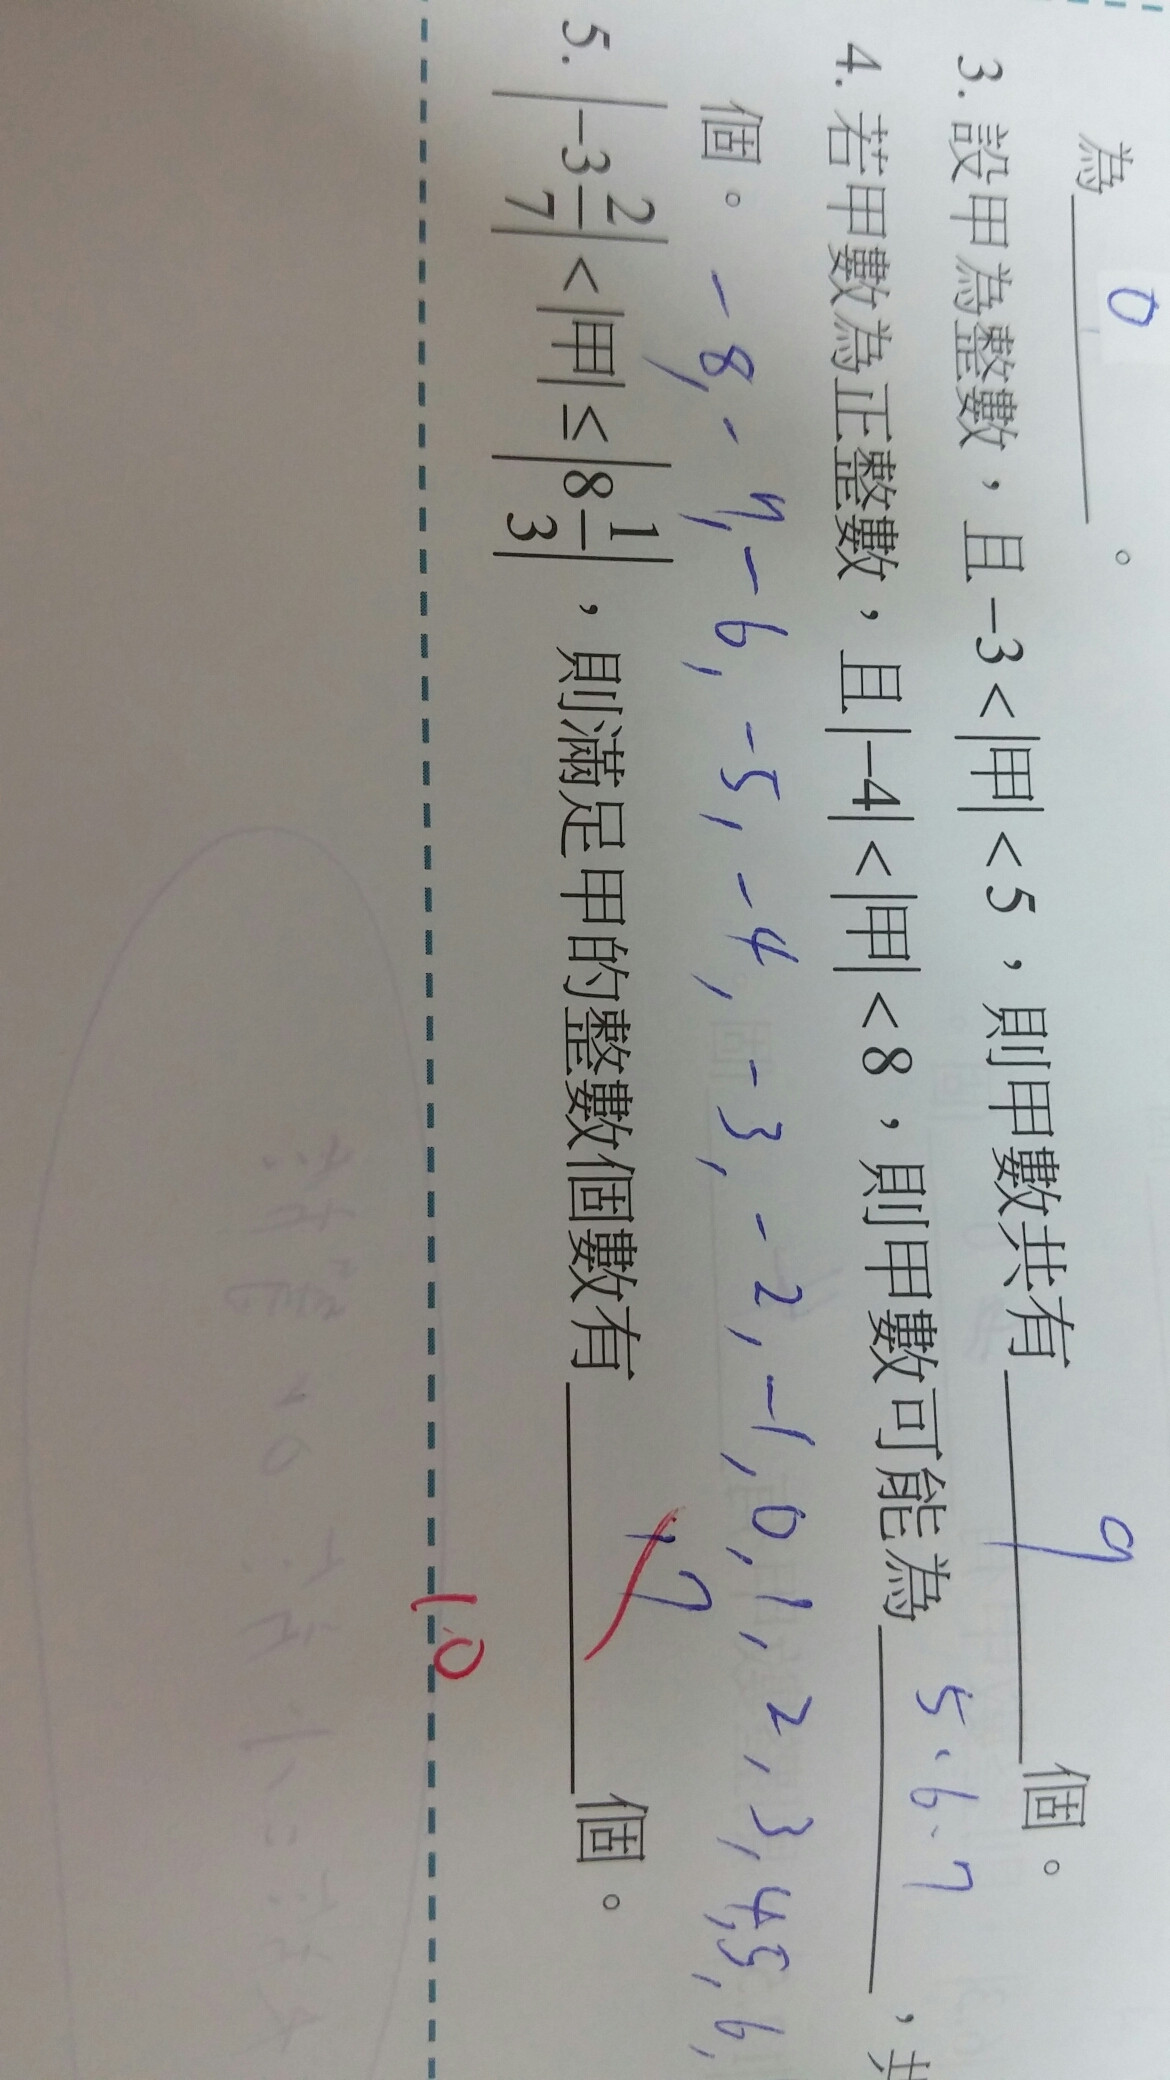 為 0 。
3. 設甲為整數，且 -3 < |甲| < 5，則甲數共有 9 個。
4. 若甲數為正整數，且 |-4| < |甲| < 8，則甲數可能為 5、6、7，共
個。
-8, -7, -6, -5, -4, -3, -2, -1, 0, 1, 2, 3, 4, 5, 6,
, 7
5. |-3 2/7| < |甲| ≤ |8 1/3|，則滿足甲的整數個數有 個。
10